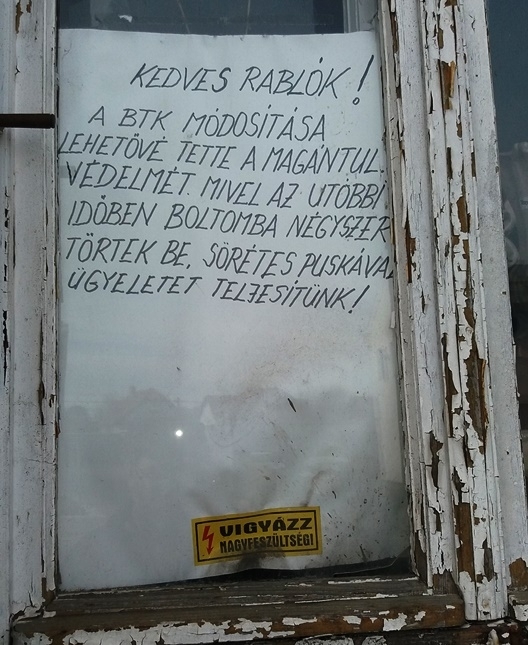 KEDVES RABLÓK!
A BTK MÓDOSÍTÁSA
LEHETŐVÉ TETTE A MAGÁNTUL.
VÉDELMÉT. MIVEL AZ UTÓBBI
IDŐBEN BOLTOMBA NÉGYSZER
TÖRTEK BE, SÖRÉTES PUSKÁVAL
ÜGYELETET TELJESÍTÜNK!
VIGYÁZZ
NAGYFESZÜLTSÉG!